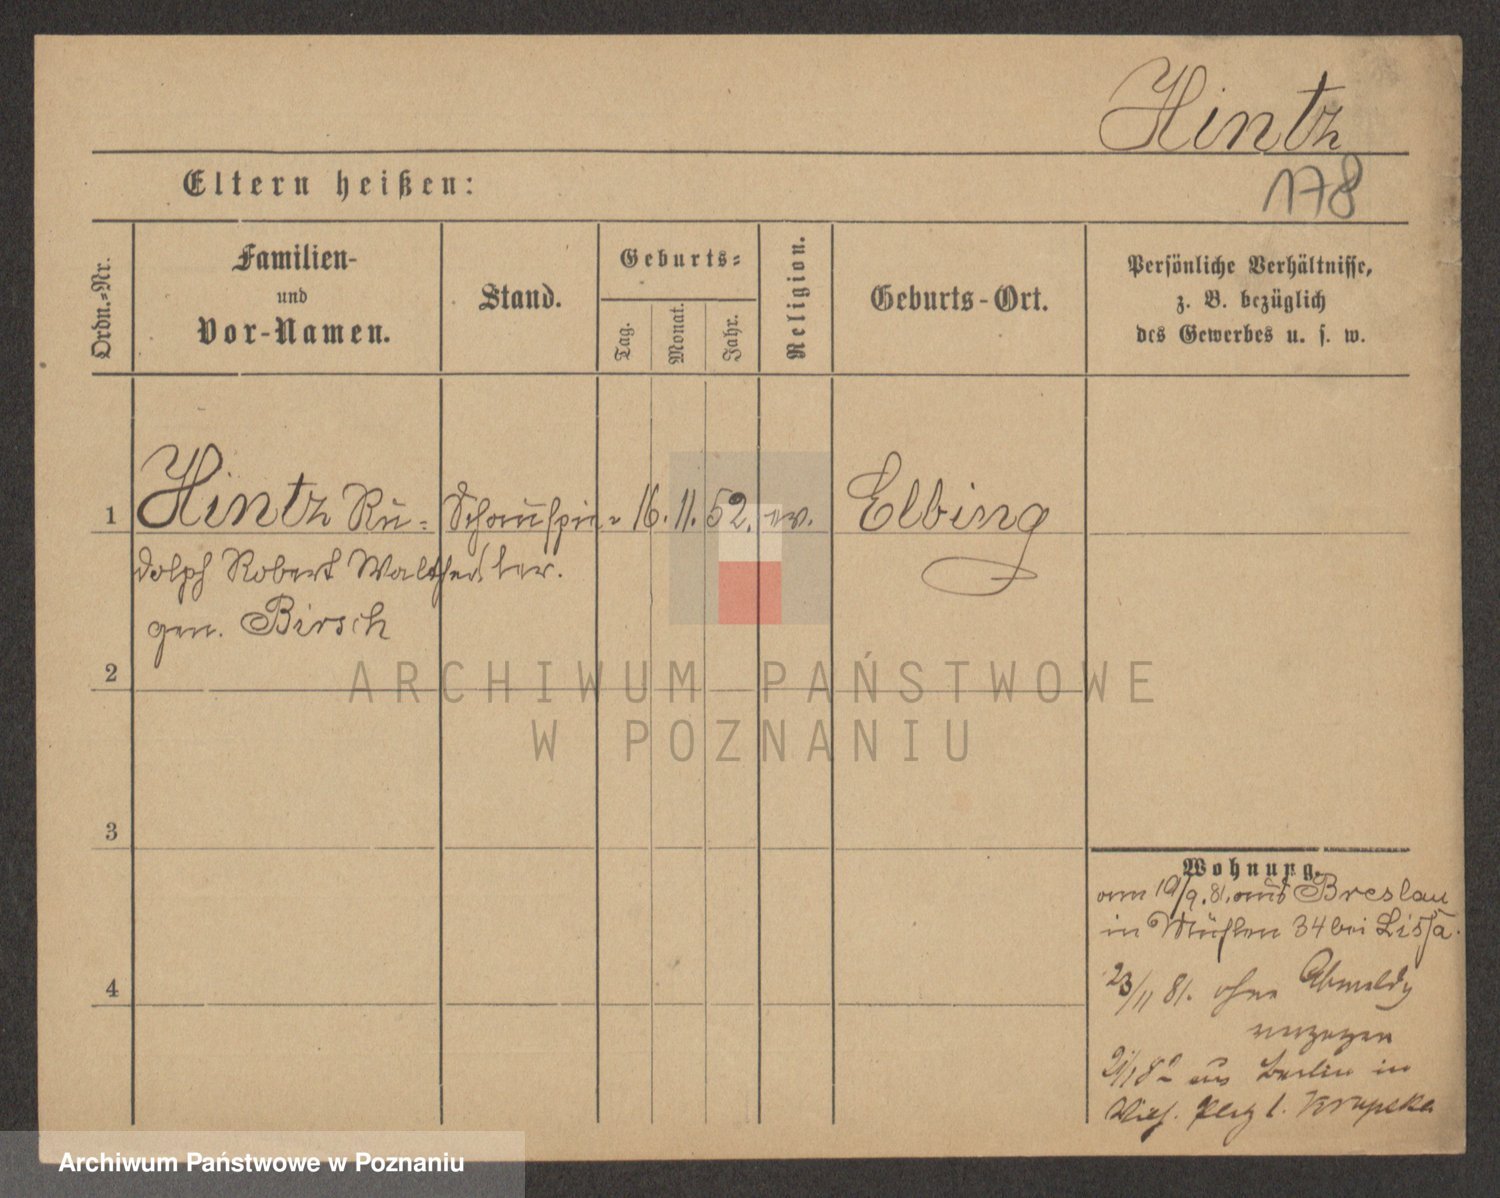 Hintz
178
Eltern heißen:
Ordn.-Nr.
Familien-
und
Vor-Namen.
Stand.
Geburts-
Tag.
Monat.
Jahr.
Religion.
Geburts-Ort.
Persönliche Verhältnisse,
z. B. bezüglich
des Gewerbes u. s. w.
1 Hintz Ru- Schauspie- 16. 11. 52. ev. Elbing
dolph Robert Walther ler.
gen. Birsch
2
ARCHIWUM PAŃSTWOWE
W POZNANIU
3
4
Wohnung.
am 19/9. 81. aus Breslau
in Mühlen 34 bei Lissa.
23/11 81. ohne Abmeldg
verzogen
aus Berlin in
Krupska
Archiwum Państwowe w Poznaniu